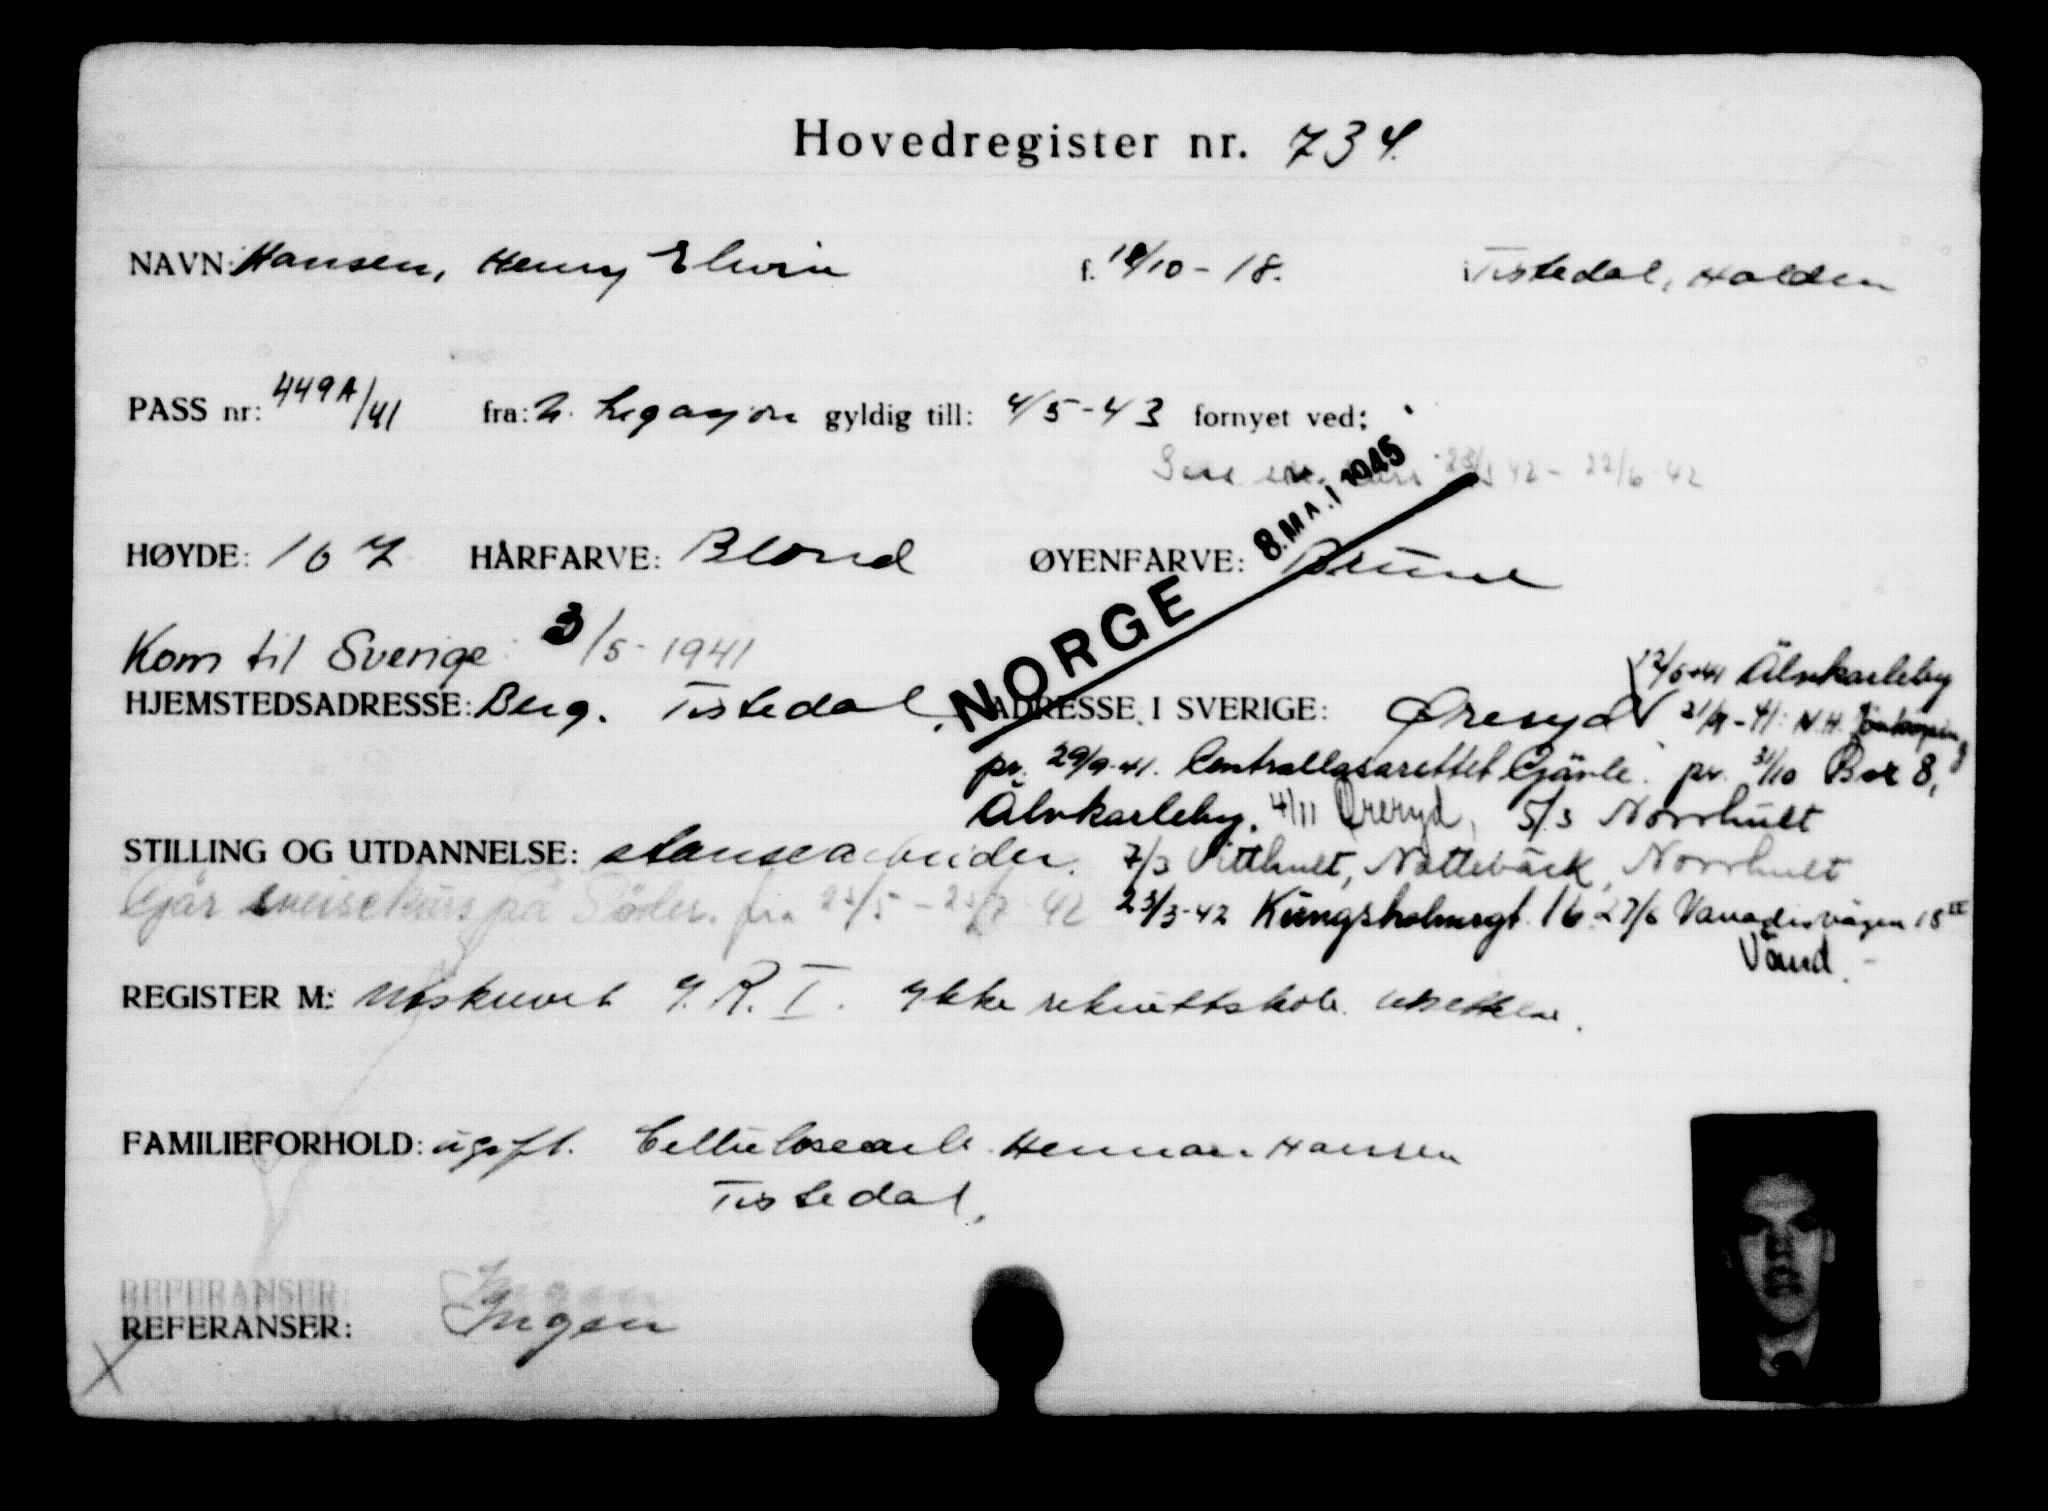 Hovedregister nr. 734.
NAVN: Hansen, Henry Elwin f. 18/10-18. i Tistedal, Halden
PASS nr: 449A/41 fra: N. Legasjon gyldig till: 4/5-43 fornyet ved:
42 - 22/6-42
8. MAI 1945
HØYDE: 167 HÅRFARVE: Blond ØYENFARVE: Brune
NORGE
Kom til Sverige: 3/5-1941
12/6-41 Älvkarleby
HJEMSTEDSADRESSE: Berg. Tistedal. ADRESSE I SVERIGE: Øreryd 21/9-41: N.H. Jönköping
pr. 29/9-41. Centrallasarettet Gävle. pr. 31/10 Box 8,
Älvkarleby. 4/11 Øreryd, 5/3 Norrhult
STILLING OG UTDANNELSE: stansearbeider. 7/3 Vitthult, Nottebäck, Norrhult
Går sveisekurs på Söder. fra 23/5 - 23/7 42 23/3-42 Kungsholmsgt. 16. 27/6 Vanadisvägen 18 III
Vänd.
REGISTER M: Utskrevet I.R.I. Ikke rekruttskole.
FAMILIEFORHOLD: ugift. Cellulosearb. Herman Hansen
Tistedal.
REFERANSER:
REFERANSER: Ingen
X